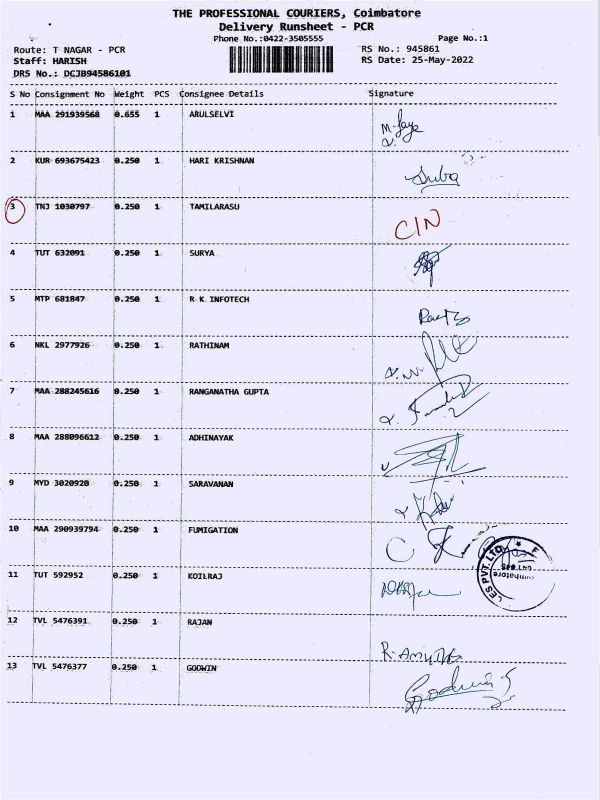 THE PROFESSIONAL COURIERS, Coimbatore
Delivery Runsheet - PCR
Phone No.:0422-3505555 Page No.:1
Route: T NAGAR - PCR RS No.: 945861
Staff: HARISH RS Date: 25-May-2022
DRS No.: DCJB94586101
S No Consignment No Weight PCS Consignee Details Signature
1 MAA 291939568 0.655 1 ARULSELVI
2 KUR 693675423 0.250 1 HARI KRISHNAN
3 TNJ 1030797 0.250 1 TAMILARASU C/N
4 TUT 632091 0.250 1 SURYA
5 MTP 681847 0.250 1 R K INFOTECH
6 NKL 2977926 0.250 1 RATHINAM
7 MAA 288245616 0.250 1 RANGANATHA GUPTA
8 MAA 288096612 0.250 1 ADHINAYAK
9 MYD 3020920 0.250 1 SARAVANAN
10 MAA 290939794 0.250 1 FUMIGATION
11 TUT 592952 0.250 1 KOILRAJ
12 TVL 5476391 0.250 1 RAJAN
13 TVL 5476377 0.250 1 GODWIN